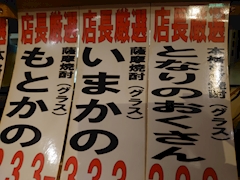 店長厳選
本格焼酎(グラス)
となりのおくさん
店長厳選
薩摩焼酎(グラス)
いまかの
333
店長厳選
薩摩焼酎(グラス)
もとかの
333